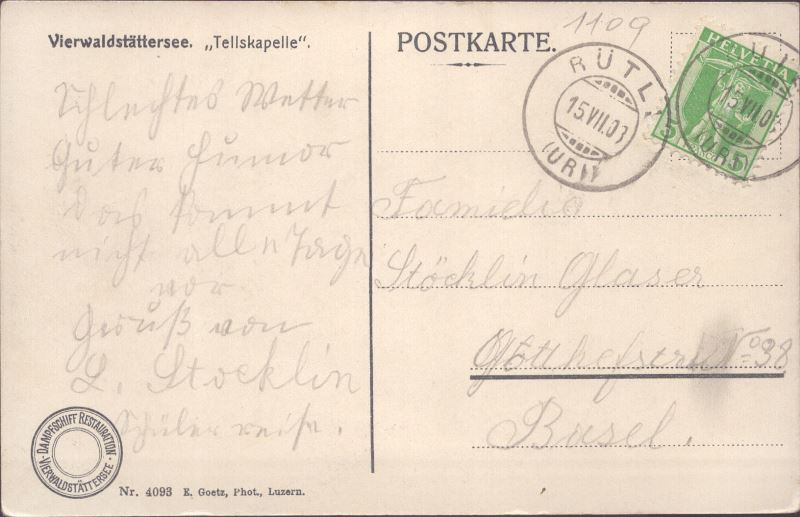 Vierwaldstättersee. „Tellskapelle“.
Schlechtes Wetter
Guter Humor
das kommt
nicht alle Tage
vor
Gruß von
L. Stocklin
Schülerreise.
DAMPFSCHIFF RESTAURATION
VIERWALDSTÄTTERSEE
Nr. 4093 E. Goetz, Phot., Luzern.
POSTKARTE.
1109
RÜTLI
15.VII.03
(URI)
HELVETIA
5
Familie
Stöcklin Glaser
No 38
Basel.